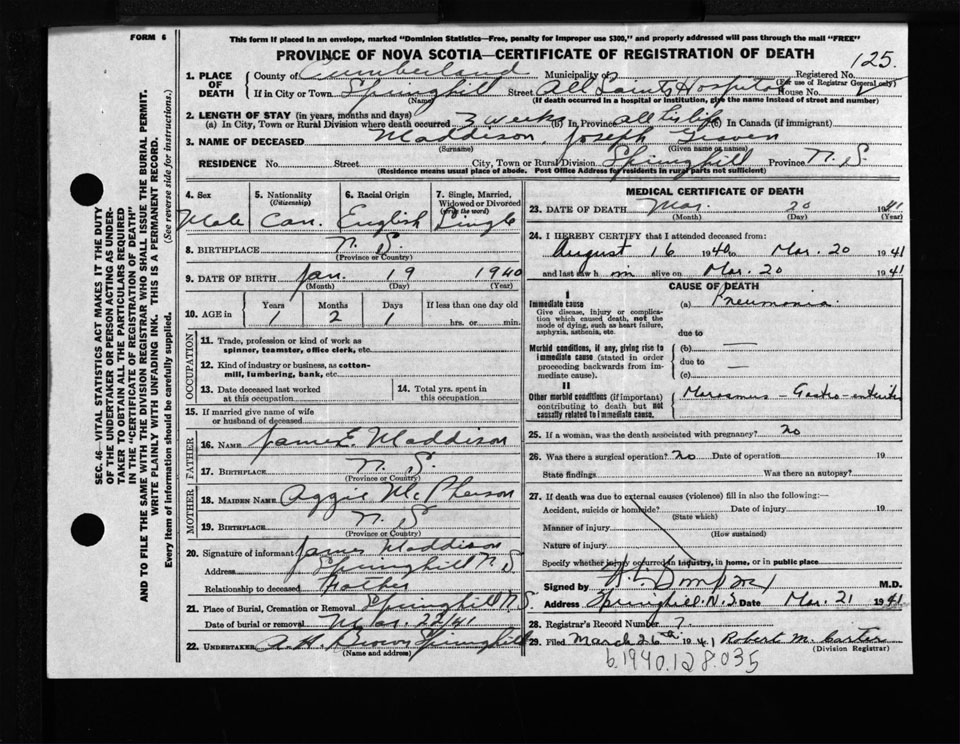 FORM 6
This form if placed in an envelope, marked "Dominion Statistics—Free, penalty for improper use $300," and properly addressed will pass through the mail "FREE"
PROVINCE OF NOVA SCOTIA—CERTIFICATE OF REGISTRATION OF DEATH
125.
SEC. 46— VITAL STATISTICS ACT MAKES IT THE DUTY
OF THE UNDERTAKER OR PERSON ACTING AS UNDER-
TAKER TO OBTAIN ALL THE PARTICULARS REQUIRED
IN THE "CERTIFICATE OF REGISTRATION OF DEATH"
AND TO FILE THE SAME WITH THE DIVISION REGISTRAR WHO SHALL ISSUE THE BURIAL PERMIT.
WRITE PLAINLY WITH UNFADING INK. THIS IS A PERMANENT RECORD.
Every item of Information should be carefully supplied. (See reverse side for instructions.)
1. PLACE OF DEATH
County of Cumberland Municipality of Registered No.
(For use of Registrar General only)
If in City or Town Springhill Street All Saints Hospital House No.
(Name) (If death occurred in a hospital or institution, give the name instead of street and number)
2. LENGTH OF STAY (in years, months and days)
(a) In City, Town or Rural Division where death occurred 3 weeks (b) In Province all his life (c) In Canada (if immigrant)
3. NAME OF DECEASED Maddison, Joseph
(Surname) (Given name or names)
RESIDENCE No. Street City, Town or Rural Division Springhill Province N. S.
(Residence means usual place of abode. Post Office Address for residents in rural parts not sufficient)
4. Sex 5. Nationality (Citizenship) 6. Racial Origin 7. Single, Married, Widowed or Divorced (write the word)
Male Can. English Single
8. BIRTHPLACE N. S.
(Province or Country)
9. DATE OF BIRTH Jan. 19 1940
(Month) (Day) (Year)
10. AGE in Years Months Days If less than one day old
1 2 1 hrs. or min.
OCCUPATION
11. Trade, profession or kind of work as spinner, teamster, office clerk, etc.
12. Kind of industry or business, as cotton-mill, lumbering, bank, etc.
13. Date deceased last worked at this occupation
14. Total yrs. spent in this occupation
15. If married give name of wife or husband of deceased
FATHER
16. NAME James E. Maddison
17. BIRTHPLACE N. S.
(Province or Country)
MOTHER
18. MAIDEN NAME Aggie McPherson
19. BIRTHPLACE N. S.
(Province or Country)
20. Signature of informant James Maddison
Address Springhill N S
Relationship to deceased Father
21. Place of Burial, Cremation or Removal Springhill N. S.
Date of burial or removal Mar. 22/41
22. UNDERTAKER A.H. Brown Springhill
(Name and address)
MEDICAL CERTIFICATE OF DEATH
23. DATE OF DEATH Mar. 20 1941
(Month) (Day) (Year)
24. I HEREBY CERTIFY that I attended deceased from:
August 16 1940 to Mar. 20 1941
and last saw h im alive on Mar. 20 1941
CAUSE OF DEATH
I
Immediate cause (a) Pneumonia
Give disease, injury or complication which caused death, not the mode of dying, such as heart failure, asphyxia, asthenia, etc.
due to
Morbid conditions, if any, giving rise to immediate cause (stated in order proceeding backwards from immediate cause).
(b) —
due to
(c) —
II
Other morbid conditions (if important) contributing to death but not causally related to immediate cause.
Marasmus – Gastro-interitis
25. If a woman, was the death associated with pregnancy? No
26. Was there a surgical operation? No Date of operation 19
State findings Was there an autopsy?
27. If death was due to external causes (violence) fill in also the following:—
Accident, suicide or homicide? Date of injury 19
(State which)
Manner of injury
(How sustained)
Nature of injury
Specify whether injury occurred in industry, in home, or in public place
Signed by M.D.
Address Springhill. N. S. Date Mar. 21 1941
28. Registrar's Record Number 7.
29. Filed March 26th 1941 Robert M. Carter
(Division Registrar)
b.1940.128.035